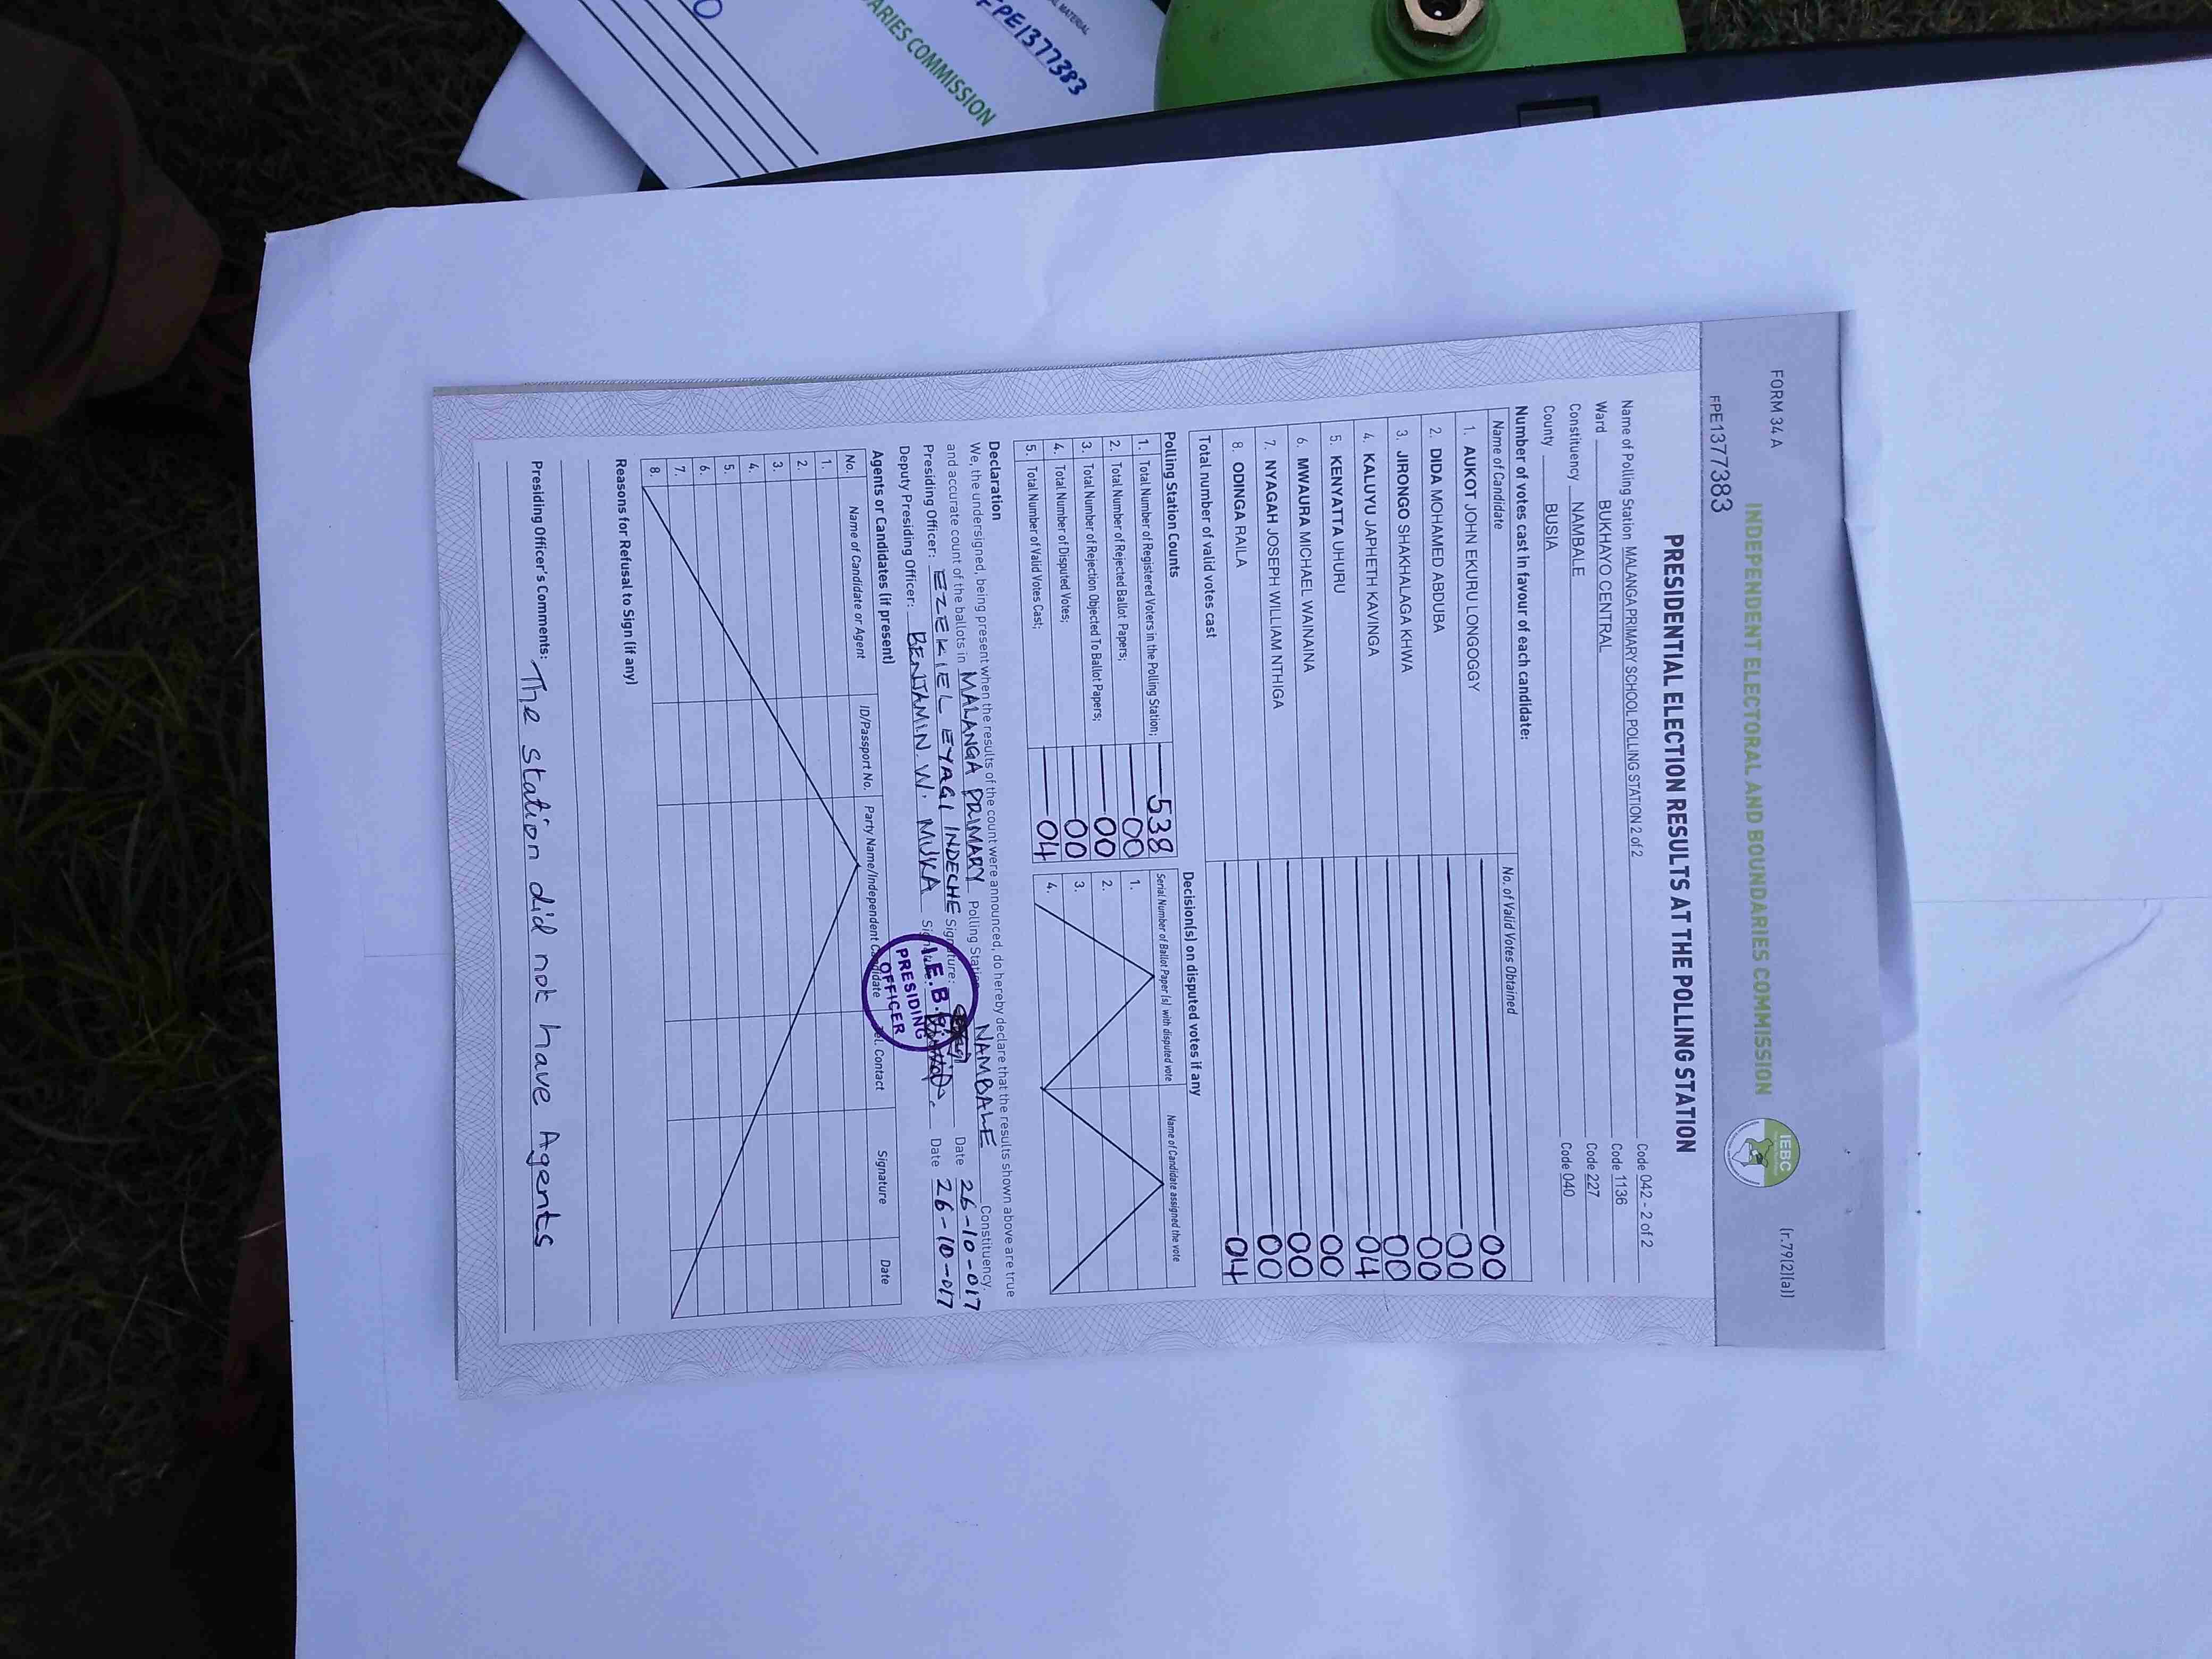 FORM 34 A
(r.79(2)(a))
INDEPENDENT ELECTORAL AND BOUNDARIES COMMISSION
IEBC
FPE1377383
PRESIDENTIAL ELECTION RESULTS AT THE POLLING STATION
Name of Polling Station MALANGA PRIMARY SCHOOL POLLING STATION 2 of 2 Code 042 - 2 of 2
Ward BUKHAYO CENTRAL Code 1136
Constituency NAMBALE Code 227
County BUSIA Code 040
Number of votes cast in favour of each candidate:
Name of Candidate No. of Valid Votes Obtained
1. AUKOT JOHN EKURU LONGOGGY 00
2. DIDA MOHAMED ABDUBA 00
3. JIRONGO SHAKHALAGA KHWA 00
4. KALUYU JAPHETH KAVINGA 00
5. KENYATTA UHURU 04
6. MWAURA MICHAEL WAINAINA 00
7. NYAGAH JOSEPH WILLIAM NTHIGA 00
8. ODINGA RAILA 00
Total number of valid votes cast 04
Polling Station Counts
1. Total Number of Registered Voters in the Polling Station; 538
2. Total Number of Rejected Ballot Papers; 00
3. Total Number of Rejection Objected To Ballot Papers; 00
4. Total Number of Disputed Votes; 00
5. Total Number of Valid Votes Cast; 04
Decision(s) on disputed votes if any
Serial Number of Ballot Paper (s) with disputed vote Name of Candidate assigned the vote
1.
2.
3.
4.
Declaration
We, the undersigned, being present when the results of the count were announced, do hereby declare that the results shown above are true
and accurate count of the ballots in MALANGA PRIMARY Polling Station NAMBALE Constituency.
Presiding Officer: EZEKIEL EYAGI INDECHE Signature: Date 26-10-017
Deputy Presiding Officer: BENJAMIN W. MUKA Signature: Date 26-10-017
I.E.B.C
PRESIDING
OFFICER
Agents or Candidates (if present)
No. Name of Candidate or Agent ID/Passport No. Party Name/Independent Candidate Tel. Contact Signature Date
1.
2.
3.
4.
5.
6.
7.
8.
Reasons for Refusal to Sign (if any)
Presiding Officer's Comments: The station did not have Agents
MATERIAL
FPE1377383
ARIES COMMISSION